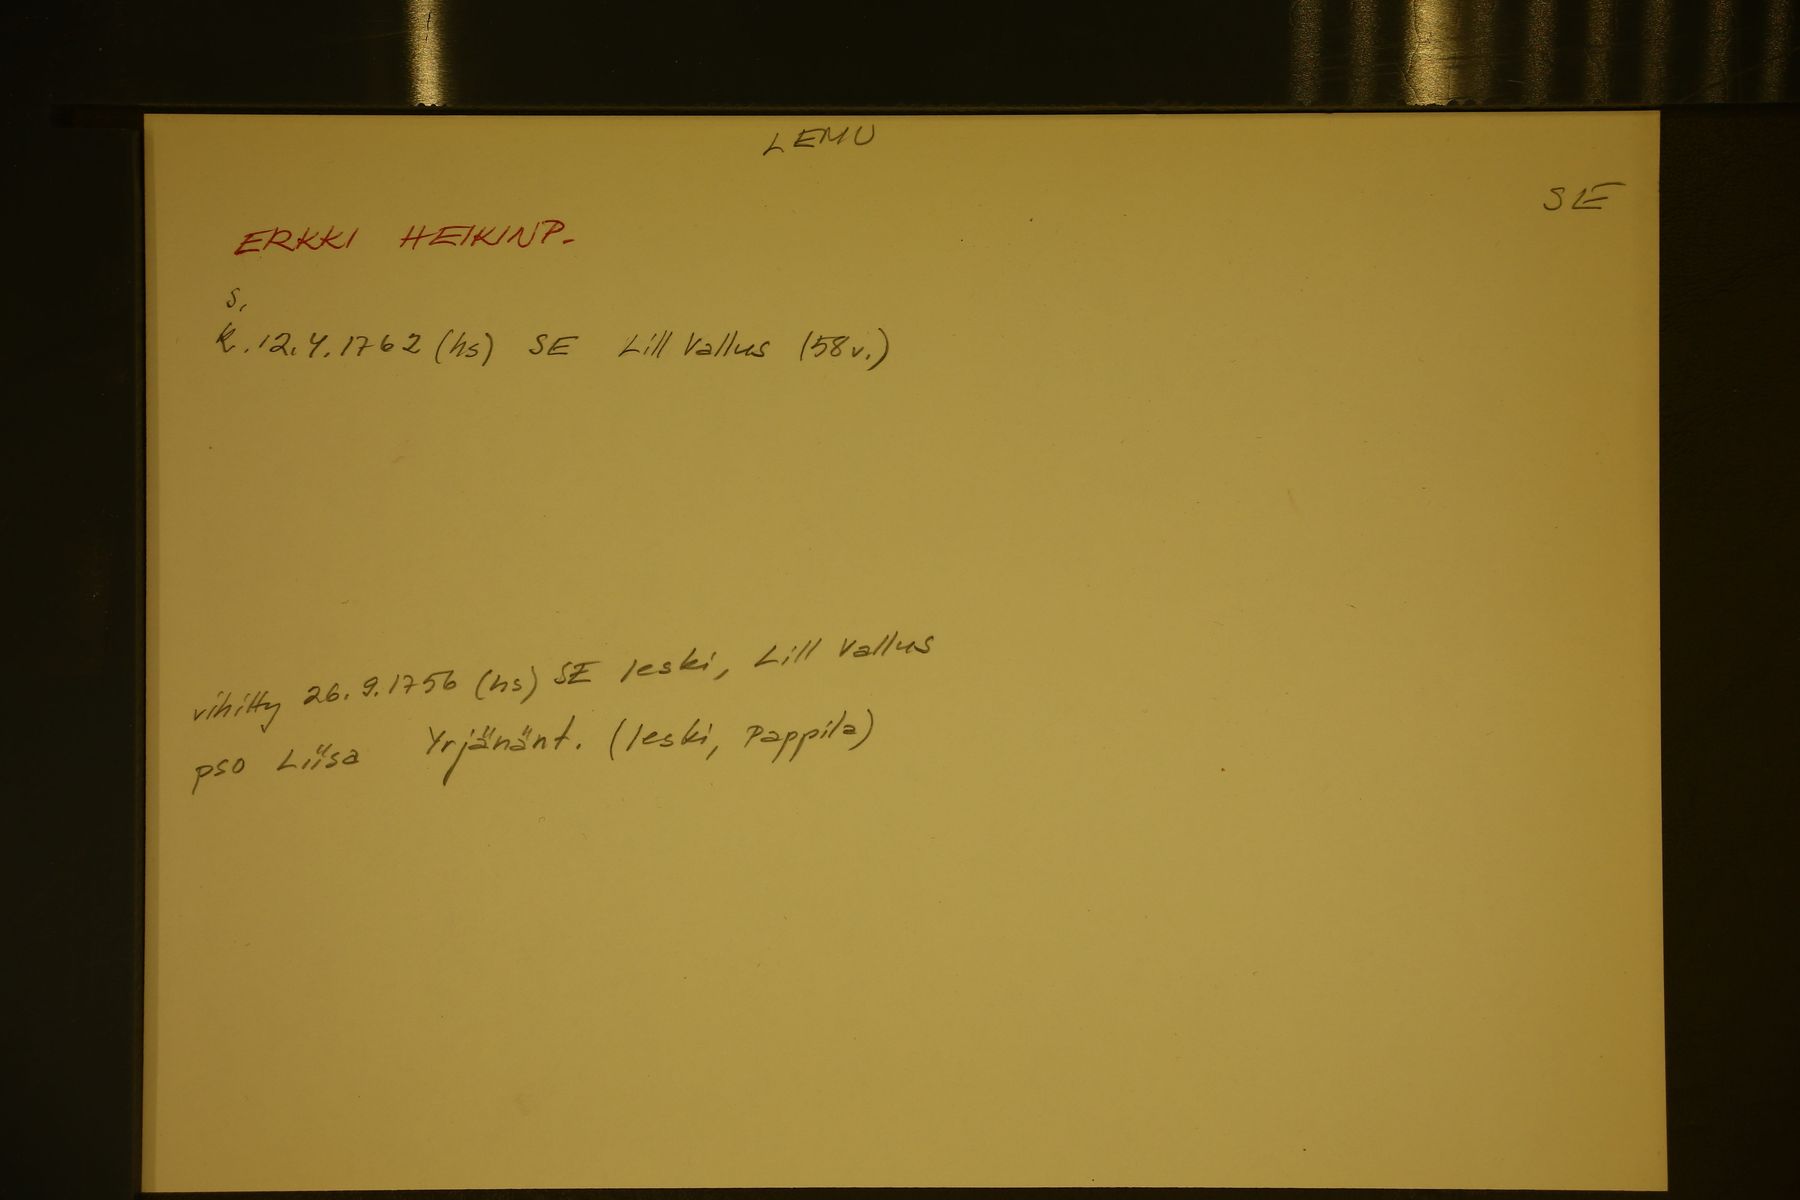 LEMU
SE
ERKKI HEIKINP.
s.
k. 12.4.1762 (hs) SE Lill Vallus (58 v.)
vihitty 26.9.1756 (hs) SE leski, Lill Vallus
pso Liisa Yrjänänt. (leski, Pappila)